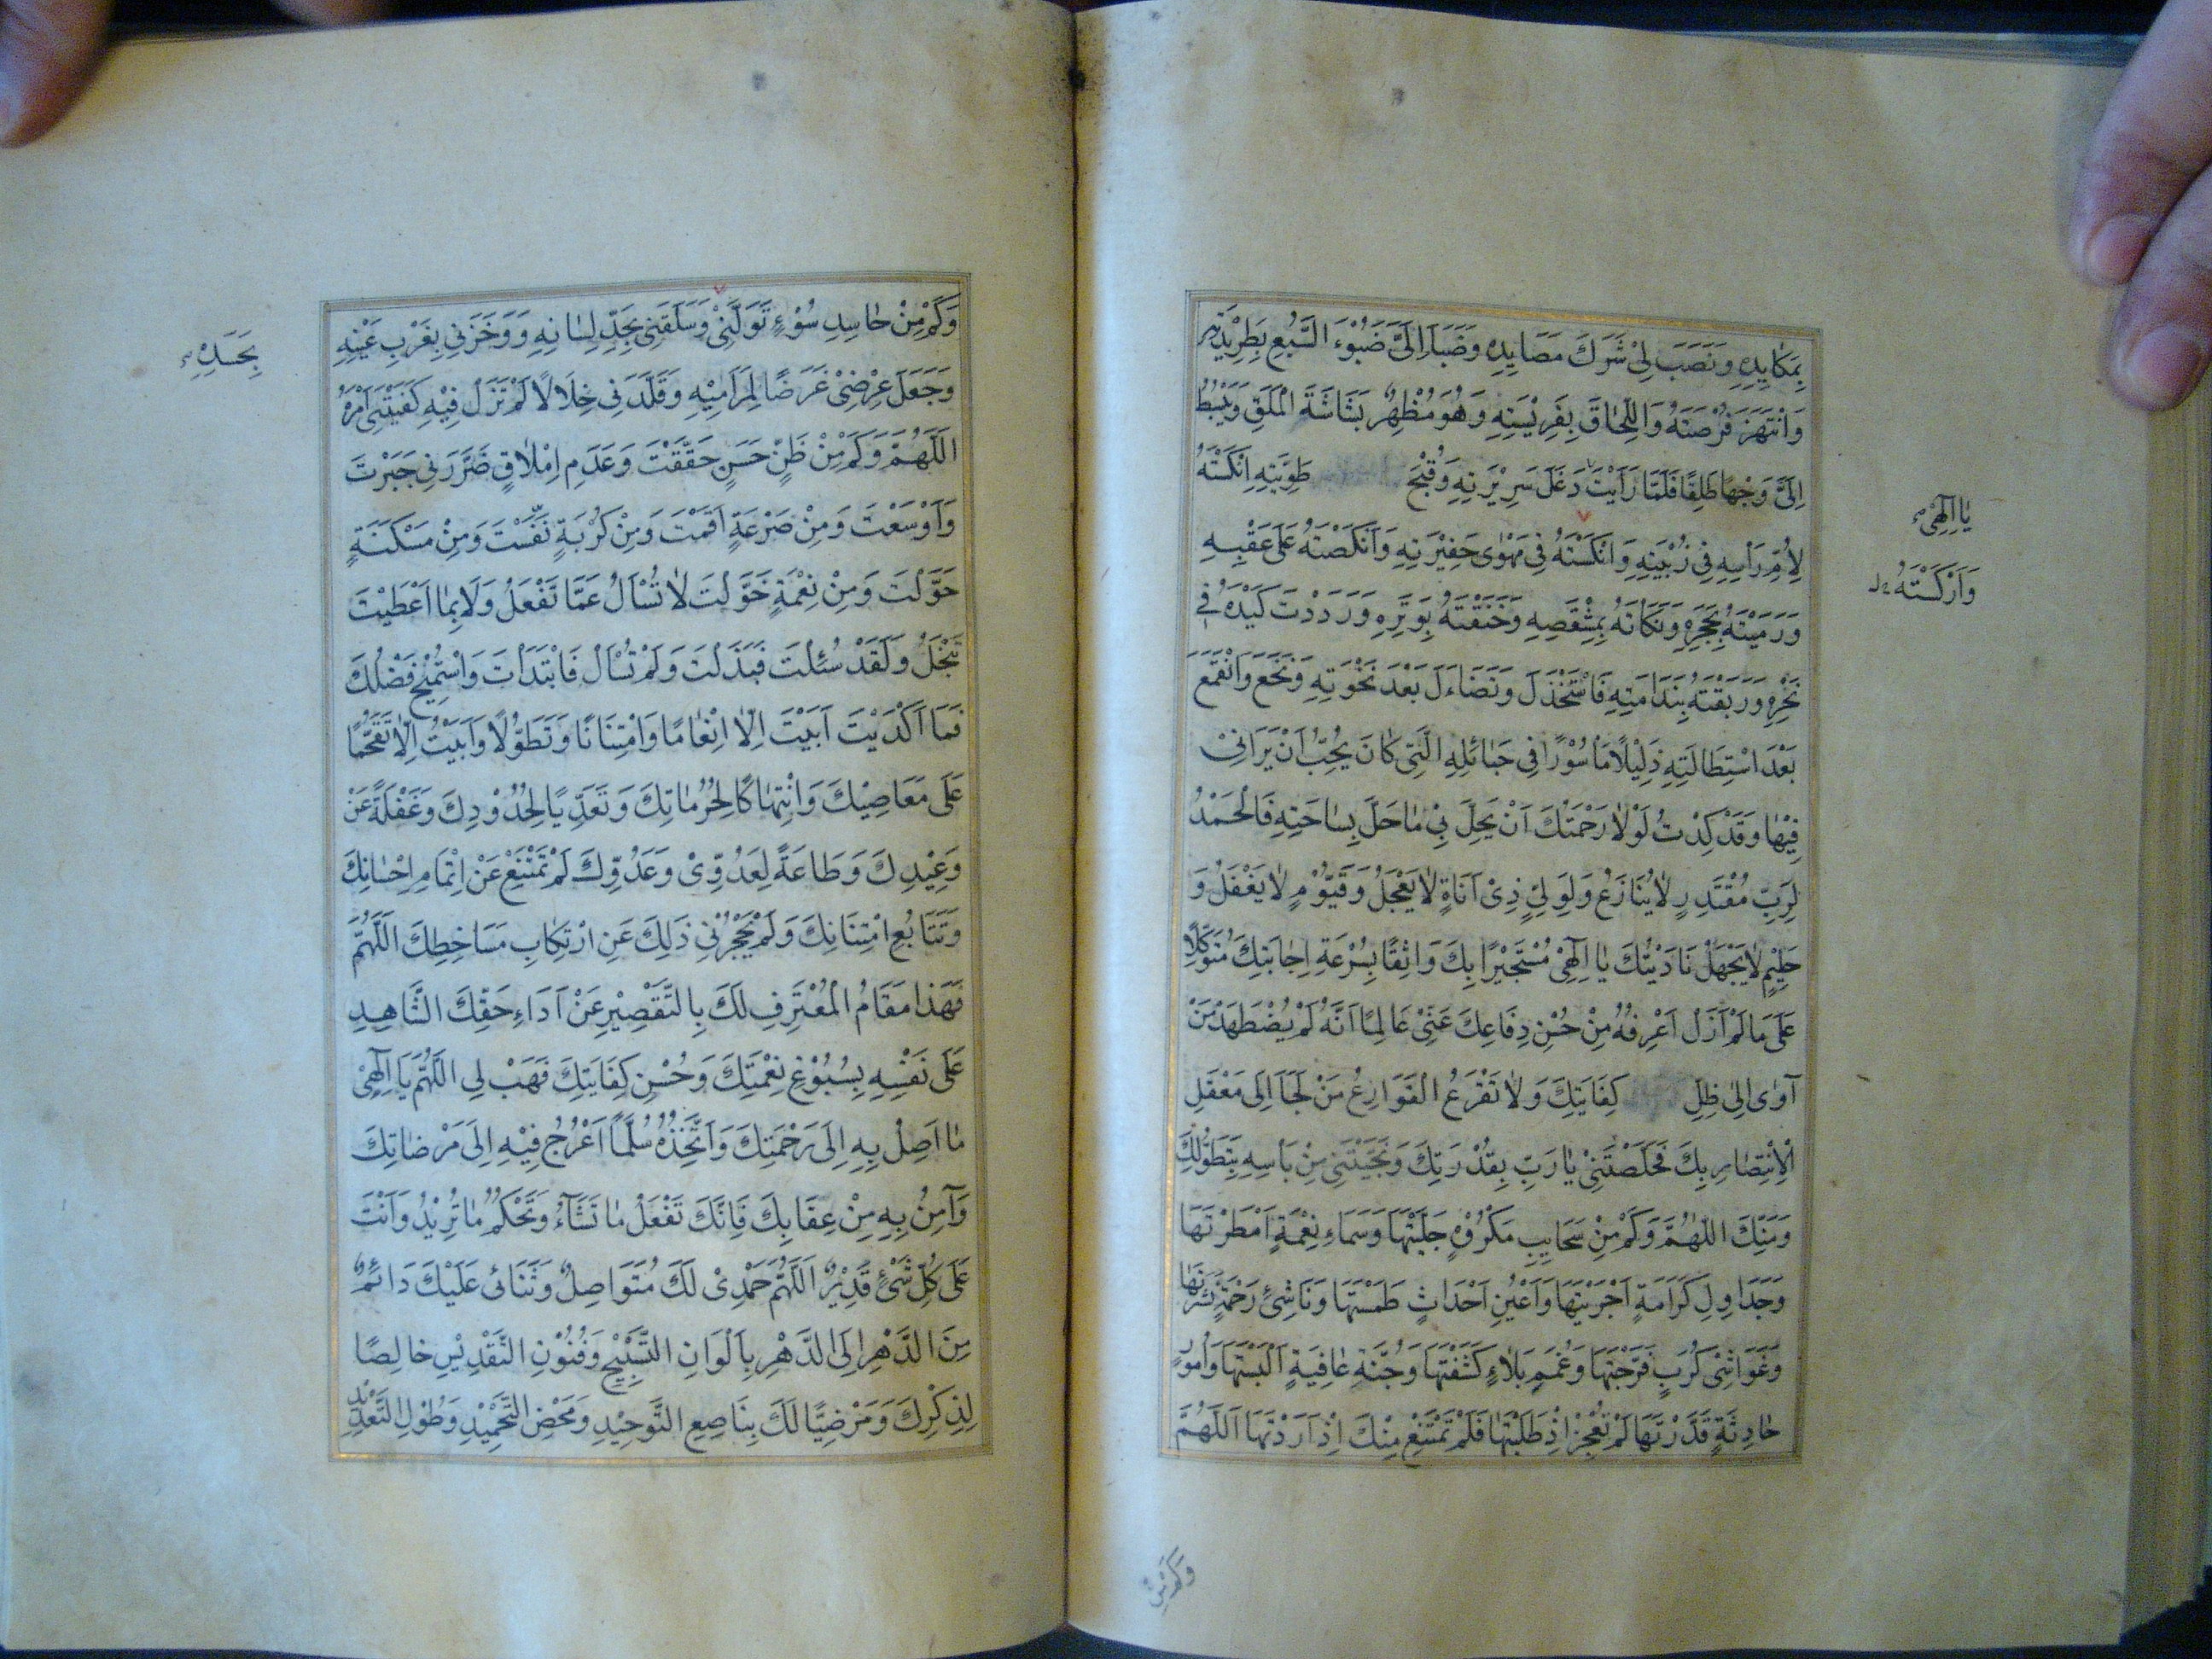 بِمَكَايِدِهِ وَنَصَبَ لِيْ شَرَكَ مَصَايِدِهِ وَضَبَأَ إِلَيَّ ضُبُوْءَ السَّبُعِ بِطَرِيْدَتِهِ
وَانْتَهَزَ فُرْصَتَهُ وَاللِّحَاقَ بِفَرِيْسَتِهِ وَهُوَ مُظْهِرٌ بَشَاشَةَ الْمَلَقِ وَيَبْسُطُ
اِلَيَّ وَجْهًا طَلِقًا فَلَمَّا رَاَيْتَ دَغَلَ سَرِيْرَتِهِ وَقُبْحَ طَوِيَّتِهِ اَنْكَسْتَهُ
يَا اِلٰهِيْ
لِاُمِّ رَأْسِهِ فِي زُبْيَتِهِ وَاَنْكَسْتَهُ فِي مَهْوٰى حَفِيْرَتِهِ وَاَنْكَصْتَهُ عَلَى عَقِبِهِ
وَاَرْكَسْتَهُ
وَرَمَيْتَهُ بِحَجَرِهِ وَنَكَاْتَهُ بِمِشْقَصِهِ وَخَنَقْتَهُ بِوَتَرِهِ وَرَدَدْتَ كَيْدَهُ فِي
نَحْرِهِ وَرَبَقْتَهُ بِنَدَامَتِهِ فَاسْتَخْذَلَ وَتَضَاءَلَ بَعْدَ نَخْوَتِهِ وَنَخَعَ وَانْقَمَعَ
بَعْدَ اسْتِطَالَتِهِ ذَلِيْلًا مَاْسُوْرًا فِي حَبَائِلِهِ الَّتِي كَانَ يُحِبُّ اَنْ يَرَانِيْ
فِيْهَا وَقَدْ كِدْتُ لَوْلَا رَحْمَتُكَ اَنْ يَحِلَّ بِيْ مَا حَلَّ بِسَاحَتِهِ فَالْحَمْدُ
لِرَبٍّ مُقْتَدِرٍ لَا يُنَازَعُ وَلِوَلِيٍّ ذِيْ اَنَاةٍ لَا يَعْجَلُ وَقَيُّوْمٍ لَا يَغْفَلُ وَ
حَلِيْمٍ لَا يَجْهَلُ نَادَيْتُكَ يَا اِلٰهِيْ مُسْتَجِيْرًا بِكَ وَاثِقًا بِسُرْعَةِ اِجَابَتِكَ مُتَوَكِّلًا
عَلَى مَا لَمْ اَزَلْ اَعْرِفُهُ مِنْ حُسْنِ دِفَاعِكَ عَنِّيْ عَالِمًا اَنَّهُ لَمْ يُضْطَهَدْ مَنْ
آوٰى اِلٰى ظِلِّ كِفَايَتِكَ وَلَا تَقْرَعُ الْقَوَارِعُ مَنْ لَجَاَ اِلَى مَعْقِلِ
الْاِنْتِصَارِ بِكَ فَخَلَّصْتَنِيْ يَا رَبِّ بِقُدْرَتِكَ وَنَجَّيْتَنِي مِنْ بَاْسِهِ بِتَطَوُّلِكَ
وَمَنِّكَ اللّٰهُمَّ وَكَمْ مِنْ سَحَايِبِ مَكْرُوْهٍ جَلَّيْتَهَا وَسَمَاءِ نِعْمَةٍ اَمْطَرْتَهَا
وَجَدَاوِلِ كَرَامَةٍ اَجْرَيْتَهَا وَاَعْيُنِ اَحْدَاثٍ طَمَسْتَهَا وَنَاشِئِ رَحْمَةٍ نَشَرْتَهَا
وَغَوَاشِيْ كُرَبٍ فَرَّجْتَهَا وَغُمَمِ بَلَاءٍ كَشَفْتَهَا وَجُنَّةِ عَافِيَةٍ اَلْبَسْتَهَا وَاُمُوْرٍ
حَادِثَةٍ قَدَّرْتَهَا لَمْ تُعْجِزْ اِذْ طَلَبْتَهَا فَلَمْ تَمْتَنِعْ مِنْكَ اِذْ اَرَدْتَهَا اَللّٰهُمَّ
وَكَمْ مِنْ
وَكَمْ مِنْ حَاسِدِ سُوْءٍ تَوَلَّنِيْ وَسَلَقَنِي بِحَدِّ لِسَانِهِ وَوَخَزَنِي بِغَرْبِ عَيْنِهِ
بِحَسَدِهِ
وَجَعَلَ عِرْضِيْ غَرَضًا لِمَرَامِيْهِ وَقَلَّدَنِي خِلَالًا لَمْ تَزَلْ فِيْهِ كَفَيْتَنِي اَمْرَهُ
اَللّٰهُمَّ وَكَمْ مِنْ ظَنٍّ حَسَنٍ حَقَّقْتَ وَعَدَمِ اِمْلَاقٍ ضَرَّرَنِي جَبَرْتَ
وَاَوْسَعْتَ وَمِنْ صَرْعَةٍ اَقَمْتَ وَمِنْ كُرْبَةٍ نَفَّسْتَ وَمِنْ مَسْكَنَةٍ
حَوَّلْتَ وَمِنْ نِعْمَةٍ خَوَّلْتَ لَا تُسْاَلُ عَمَّا تَفْعَلُ وَلَا بِمَا اَعْطَيْتَ
تَبْخَلُ وَلَقَدْ سُئِلْتَ فَبَذَلْتَ وَلَمْ تُسْاَلْ فَابْتَدَاْتَ وَاسْتُمِيْحَ فَضْلُكَ
فَمَا اَكْدَيْتَ اَبَيْتَ اِلَّا اِنْعَامًا وَامْتِنَانًا وَتَطَوُّلًا وَاَبَيْتُ اِلَّا تَقَحُّمًا
عَلَى مَعَاصِيْكَ وَانْتِهَاكًا لِحُرُمَاتِكَ وَتَعَدِّيًا لِحُدُوْدِكَ وَغَفْلَةً عَنْ
وَعِيْدِكَ وَطَاعَةً لِعَدُوِّيْ وَعَدُوِّكَ لَمْ تَمْتَنِعْ عَنْ اِتْمَامِ اِحْسَانِكَ
وَتَتَابُعِ امْتِنَانِكَ وَلَمْ يَحْجُزْنِي ذَلِكَ عَنِ ارْتِكَابِ مَسَاخِطِكَ اَللّٰهُمَّ
فَهٰذَا مَقَامُ الْمُعْتَرِفِ لَكَ بِالتَّقْصِيْرِ عَنْ اَدَاءِ حَقِّكَ الشَّاهِدِ
عَلَى نَفْسِهِ بِسُبُوْغِ نِعْمَتِكَ وَحُسْنِ كِفَايَتِكَ فَهَبْ لِي اللّٰهُمَّ يَا اِلٰهِيْ
مَا اَصِلُ بِهِ اِلَى رَحْمَتِكَ وَاَتَّخِذُهُ سُلَّمًا اَعْرُجُ فِيْهِ اِلَى مَرْضَاتِكَ
وَآمَنُ بِهِ مِنْ عِقَابِكَ فَاِنَّكَ تَفْعَلُ مَا تَشَآءُ وَتَحْكُمُ مَا تُرِيْدُ وَاَنْتَ
عَلَى كُلِّ شَيْئٍ قَدِيْرٌ اَللّٰهُمَّ حَمْدِيْ لَكَ مُتَوَاصِلٌ وَثَنَائِي عَلَيْكَ دَائِمٌ
مِنَ الدَّهْرِ اِلَى الدَّهْرِ بِاَلْوَانِ التَّسْبِيْحِ وَفُنُوْنِ التَّقْدِيْسِ خَالِصًا
لِذِكْرِكَ وَمَرْضِيًّا لَكَ بِنَاصِعِ التَّوْحِيْدِ وَمَحْضِ التَّحْمِيْدِ وَطُوْلِ التَّعْدِيْدِ